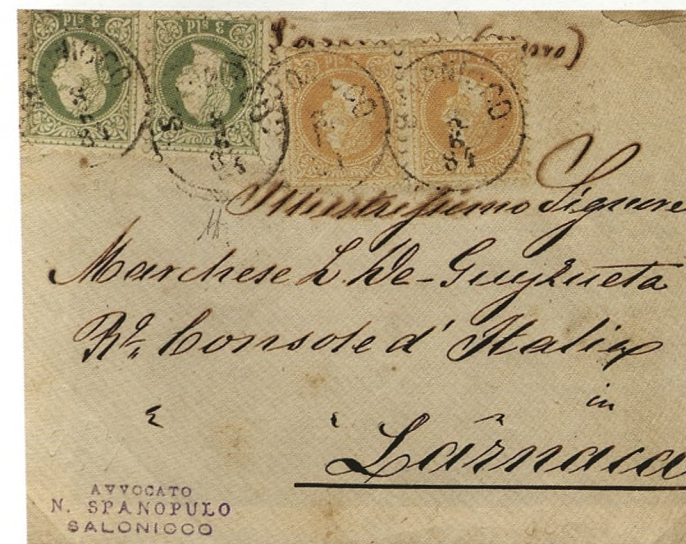 3 sld 3 sld
SALONICCO
84
Illustrissimo Signore
Marchese L. De-Guyzueta
Ro. Console d'Italia
in
Lárnaca
AVVOCATO
N. SPANOPULO
SALONICCO